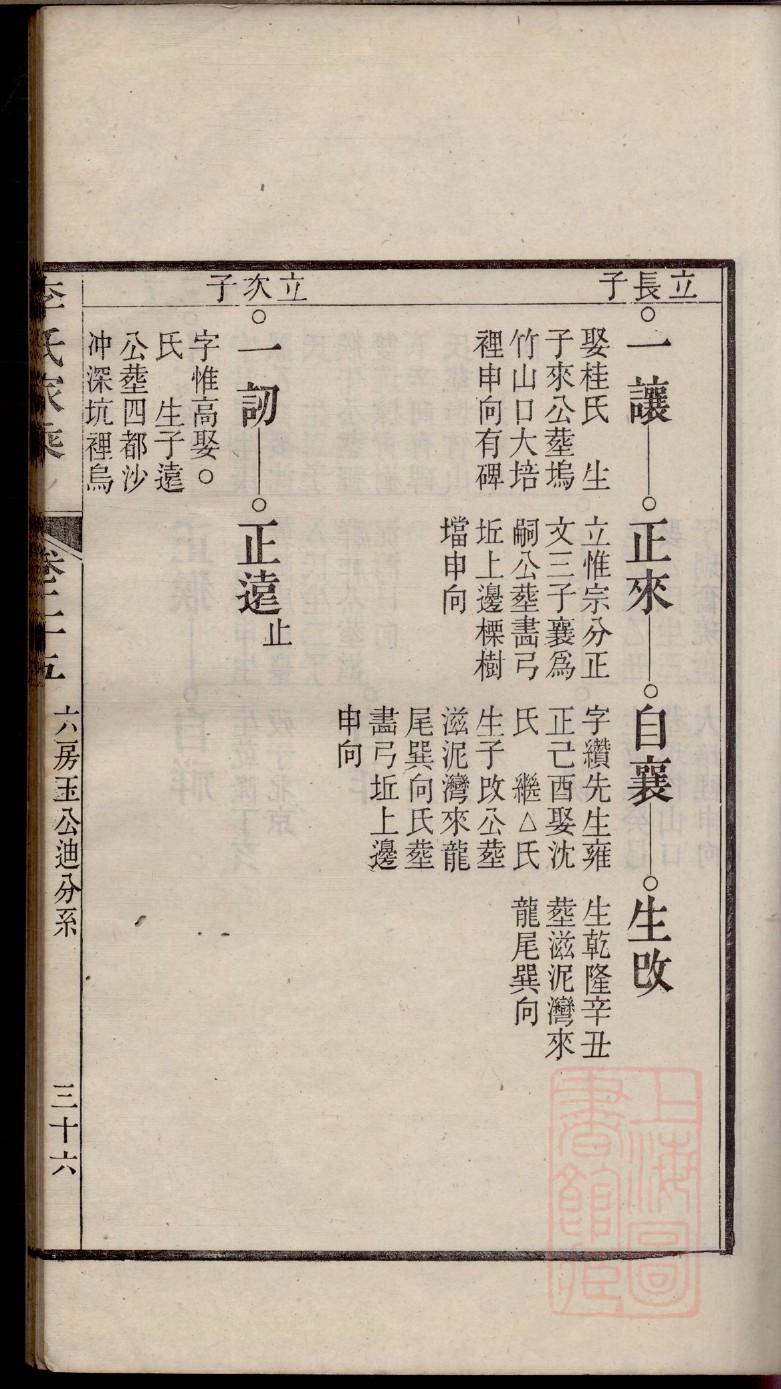 立長子
一讓
娶桂氏　生
子來公塟塢
竹山口大培
裡申向有碑
正來
立惟宗分正
文三子襄爲
嗣公塟畵弓
坵上邊㯽樹
壋申向
自襄
字纘先生雍
正己酉娶沈
氏　繼△氏
生子改公塟
滋泥灣來龍
尾巽向氏塟
畵弓坵上邊
申向
生改
生乾隆辛丑
塟滋泥灣來
龍尾巽向
立次子
一訒
字惟高娶○
氏　生子遠
公塟四都沙
冲深坑裡烏
正遠止
李氏家乘
卷二十五
六房玉公迪分系
三十六
上海圖書館藏